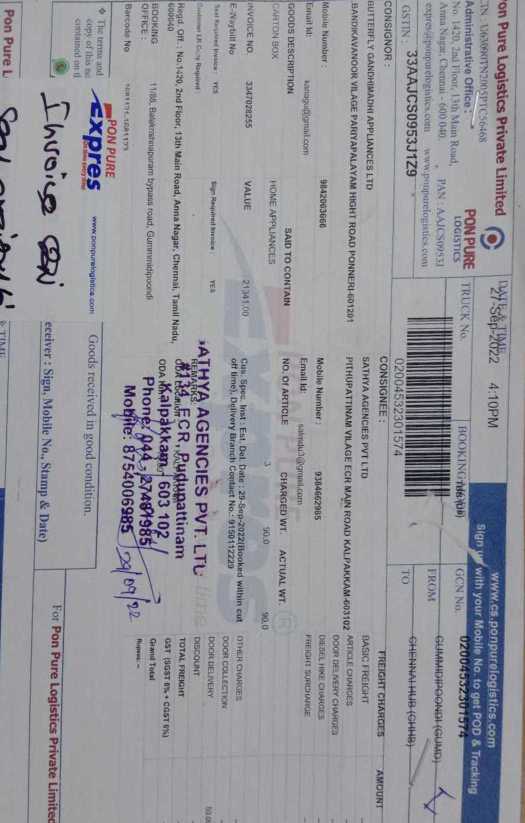 Pon Pure Logistics Private Limited
Administrative Office :
No. 1420, 2nd Floor, 13th Main Road,
Anna Nagar, Chennai - 600 040.
PAN : AAJCS0953J
www.ponpurelogistics.com
GSTIN : 33AAJCS0953J1Z9
PON PURE
LOGISTICS
DATE & TIME
27-Sep-2022 4:10PM
TRUCK No.
02004532301574
www.cs.ponpurelogistics.com
with your Mobile No. to get POD & Tracking
GCN No. 02004532301574
FROM GUMMIDIPOONDI (GUMD)
TO CHENNAI HUB (CHHB)
CONSIGNOR :
BUTTERFLY GANDHIMADHI APPLIANCES LTD
BANDIKAVANOOR VILAGE PARIYAPALAYAM HIGHT ROAD PONNERI-601201
Mobile Number : 9842063666
Email Id: kanagu@gmail.com
CONSIGNEE :
SATHYA AGENCIES PVT LTD
PITHUPATTINAM VILAGE ECR MAIN ROAD KALPAKKAM-603102
Mobile Number : 9384662985
Email Id:
FREIGHT CHARGES AMOUNT
BASIC FREIGHT
ARTICLE CHARGES
DOOR DELIVERY CHARGES
DIESEL HIKE CHARGES
FREIGHT SURCHARGE
OTHER CHARGES
DOOR COLLECTION
DOOR DELIVERY
DISCOUNT
TOTAL FREIGHT
GST (SGST 6% + CGST 6%)
Grand Total
GOODS DESCRIPTION SAID TO CONTAIN NO. OF ARTICLE CHARGED WT. ACTUAL WT.
CARTON BOX HOME APPLIANCES 3 90.0 90.0
INVOICE NO. 3347028255 VALUE 21341.00
E-Waybill No
Cus. Spec. Inst : Est. Del Date : 29-Sep-2022(Booked within cut
off time), Delivery Branch Contact No.: 9150112229
Seal Required Invoice : YES Sign Required Invoice : YES
REMARKS:
Regd. Off. : No.1420, 2nd Floor, 13th Main Road, Anna Nagar, Chennai, Tamil Nadu,
600040
BOOKING
OFFICE : 11/88, Balakrishnapuram bypass road, Gummmidipoondi
Barcode No
ATHYA AGENCIES PVT. LTD
#134, ECR, Pudupattinam
Kalpakkam - 603 102
Phone: 044 - 27481985
Mobile: 8754006985
29/09/22
The terms and
copy of this
contained on
PON PURE
Expres
www.ponpurelogistics.com
Goods received in good condition.
eceiver : Sign, Mobile No., Stamp & Date)
For Pon Pure Logistics Private Limited
Invoice
Pon Pure L